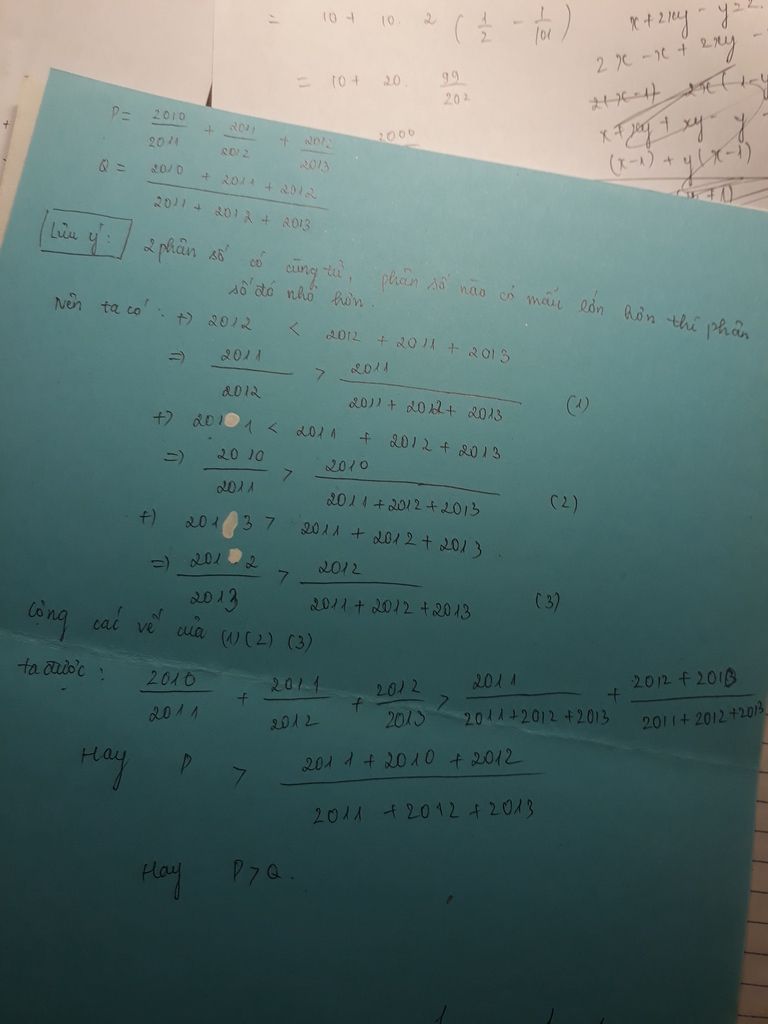 = 10 + 10. 2 ( 1/2 - 1/101 )
= 10 + 20. 99/202
2000
x + 2xy - y = 2
2x - x + 2xy -
x + xy + xy - y
(x-1) + y(x-1)
P = 2010/2011 + 2011/2012 + 2012/2013
Q = (2010 + 2011 + 2012)/(2011 + 2012 + 2013)
Lưu ý: 2 phân số có cùng tử, phân số nào có mẫu lớn hơn thì phân
số đó nhỏ hơn.
Nên ta có: +) 2012 < 2012 + 2011 + 2013
=) 2011/2012 > 2011/(2011 + 2012 + 2013) (1)
+) 2011 < 2011 + 2012 + 2013
=) 2010/2011 > 2010/(2011 + 2012 + 2013) (2)
+) 2013 > 2011 + 2012 + 2013.
=) 2012/2013 > 2012/(2011 + 2012 + 2013) (3)
Cộng các vế của (1) (2) (3)
ta được: 2010/2011 + 2011/2012 + 2012/2013 > 2011/(2011 + 2012 + 2013) + (2012 + 2010)/(2011 + 2012 + 2013)
Hay P > (2011 + 2010 + 2012)/(2011 + 2012 + 2013)
Hay P > Q.